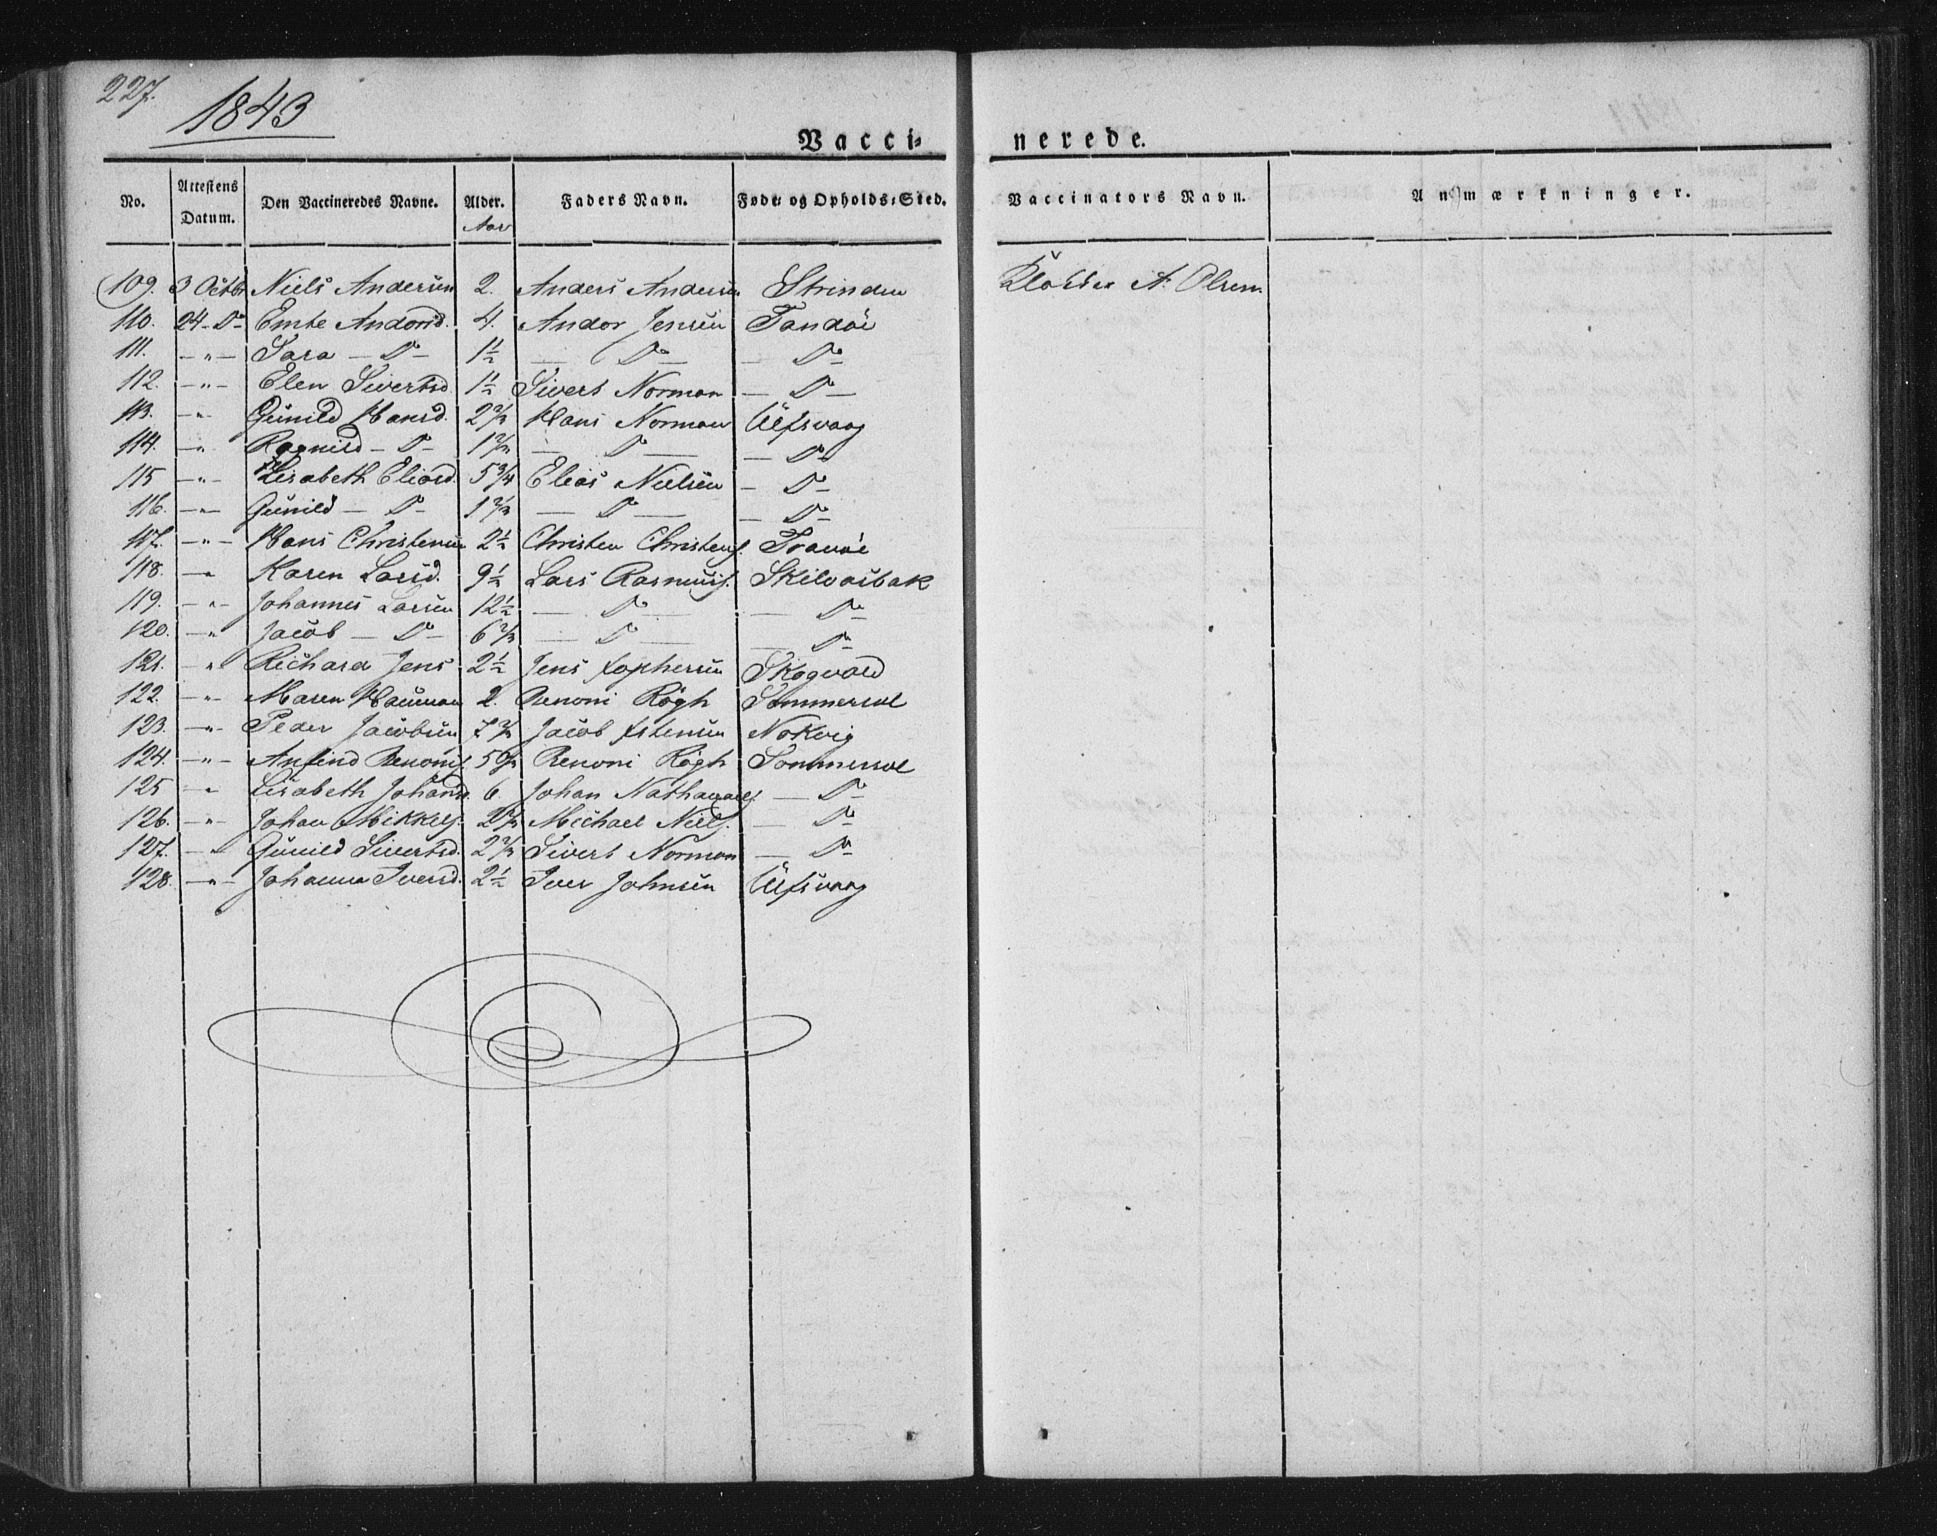 227.
1843
Vacci= nerede.
No. Attestens Datum. Den Vaccineredes Navne. Alder. Aar Faders Navn. Føde- og Opholds-Sted. Vaccinators Navn. Anmærkninger.
109. 3 Octbr Niels Andersen 2. Anders Andersen Strinden Klokker A. Olsen
110. 24 - Do Andorsd. 4. Andor Jensen Tandöe
111. - " - Sara - Do - 1½ - Do - - Do -
112. - " - Elen Sivertsd. 1½ Sivert Norman - Do -
113. - " - Gunild Hansd. 2 Hans Norman Ulfsvaag
114. - " - Ragnild - Do - 1 - Do - - Do
115 - " - Elisabeth Eliasd. 5¾ Elias Nielsen - Do -
116. - " - Gunild - Do - 1 - Do - - Do -
117. - " - Hans Christensen 2½ Christen Christens. Tranöe
118. - " Karen Larsd. 9½ Lars Rasmuss. Skilvasbak
119. - " - Johannes Larsen 12½ - Do - - Do -
120. - " Jacob - Do - 6 - Do - - Do -
121. - " Richard Jens 2½ Jens Xophersen Skogvold
122. - " - Maren 2. Benoni Rögh Sommersel
123. - " - Peder Jacobsen 7 Jacob Estensen Nokvig
124. - " - Anfind Benonis. 5 Benoni Rögh Sommersel
125 - " Lisabeth Johansd. 6. Johan Nathanaels. - Do -
126. - " - Johan Mikkels. 2 Michael Niels. - Do -
127. - " Gunild Sivertsd. 2 Sivert Norman - Do -
128. - " - Johanna Iversd. 2½ Iver Johnsen Ulfsvaag